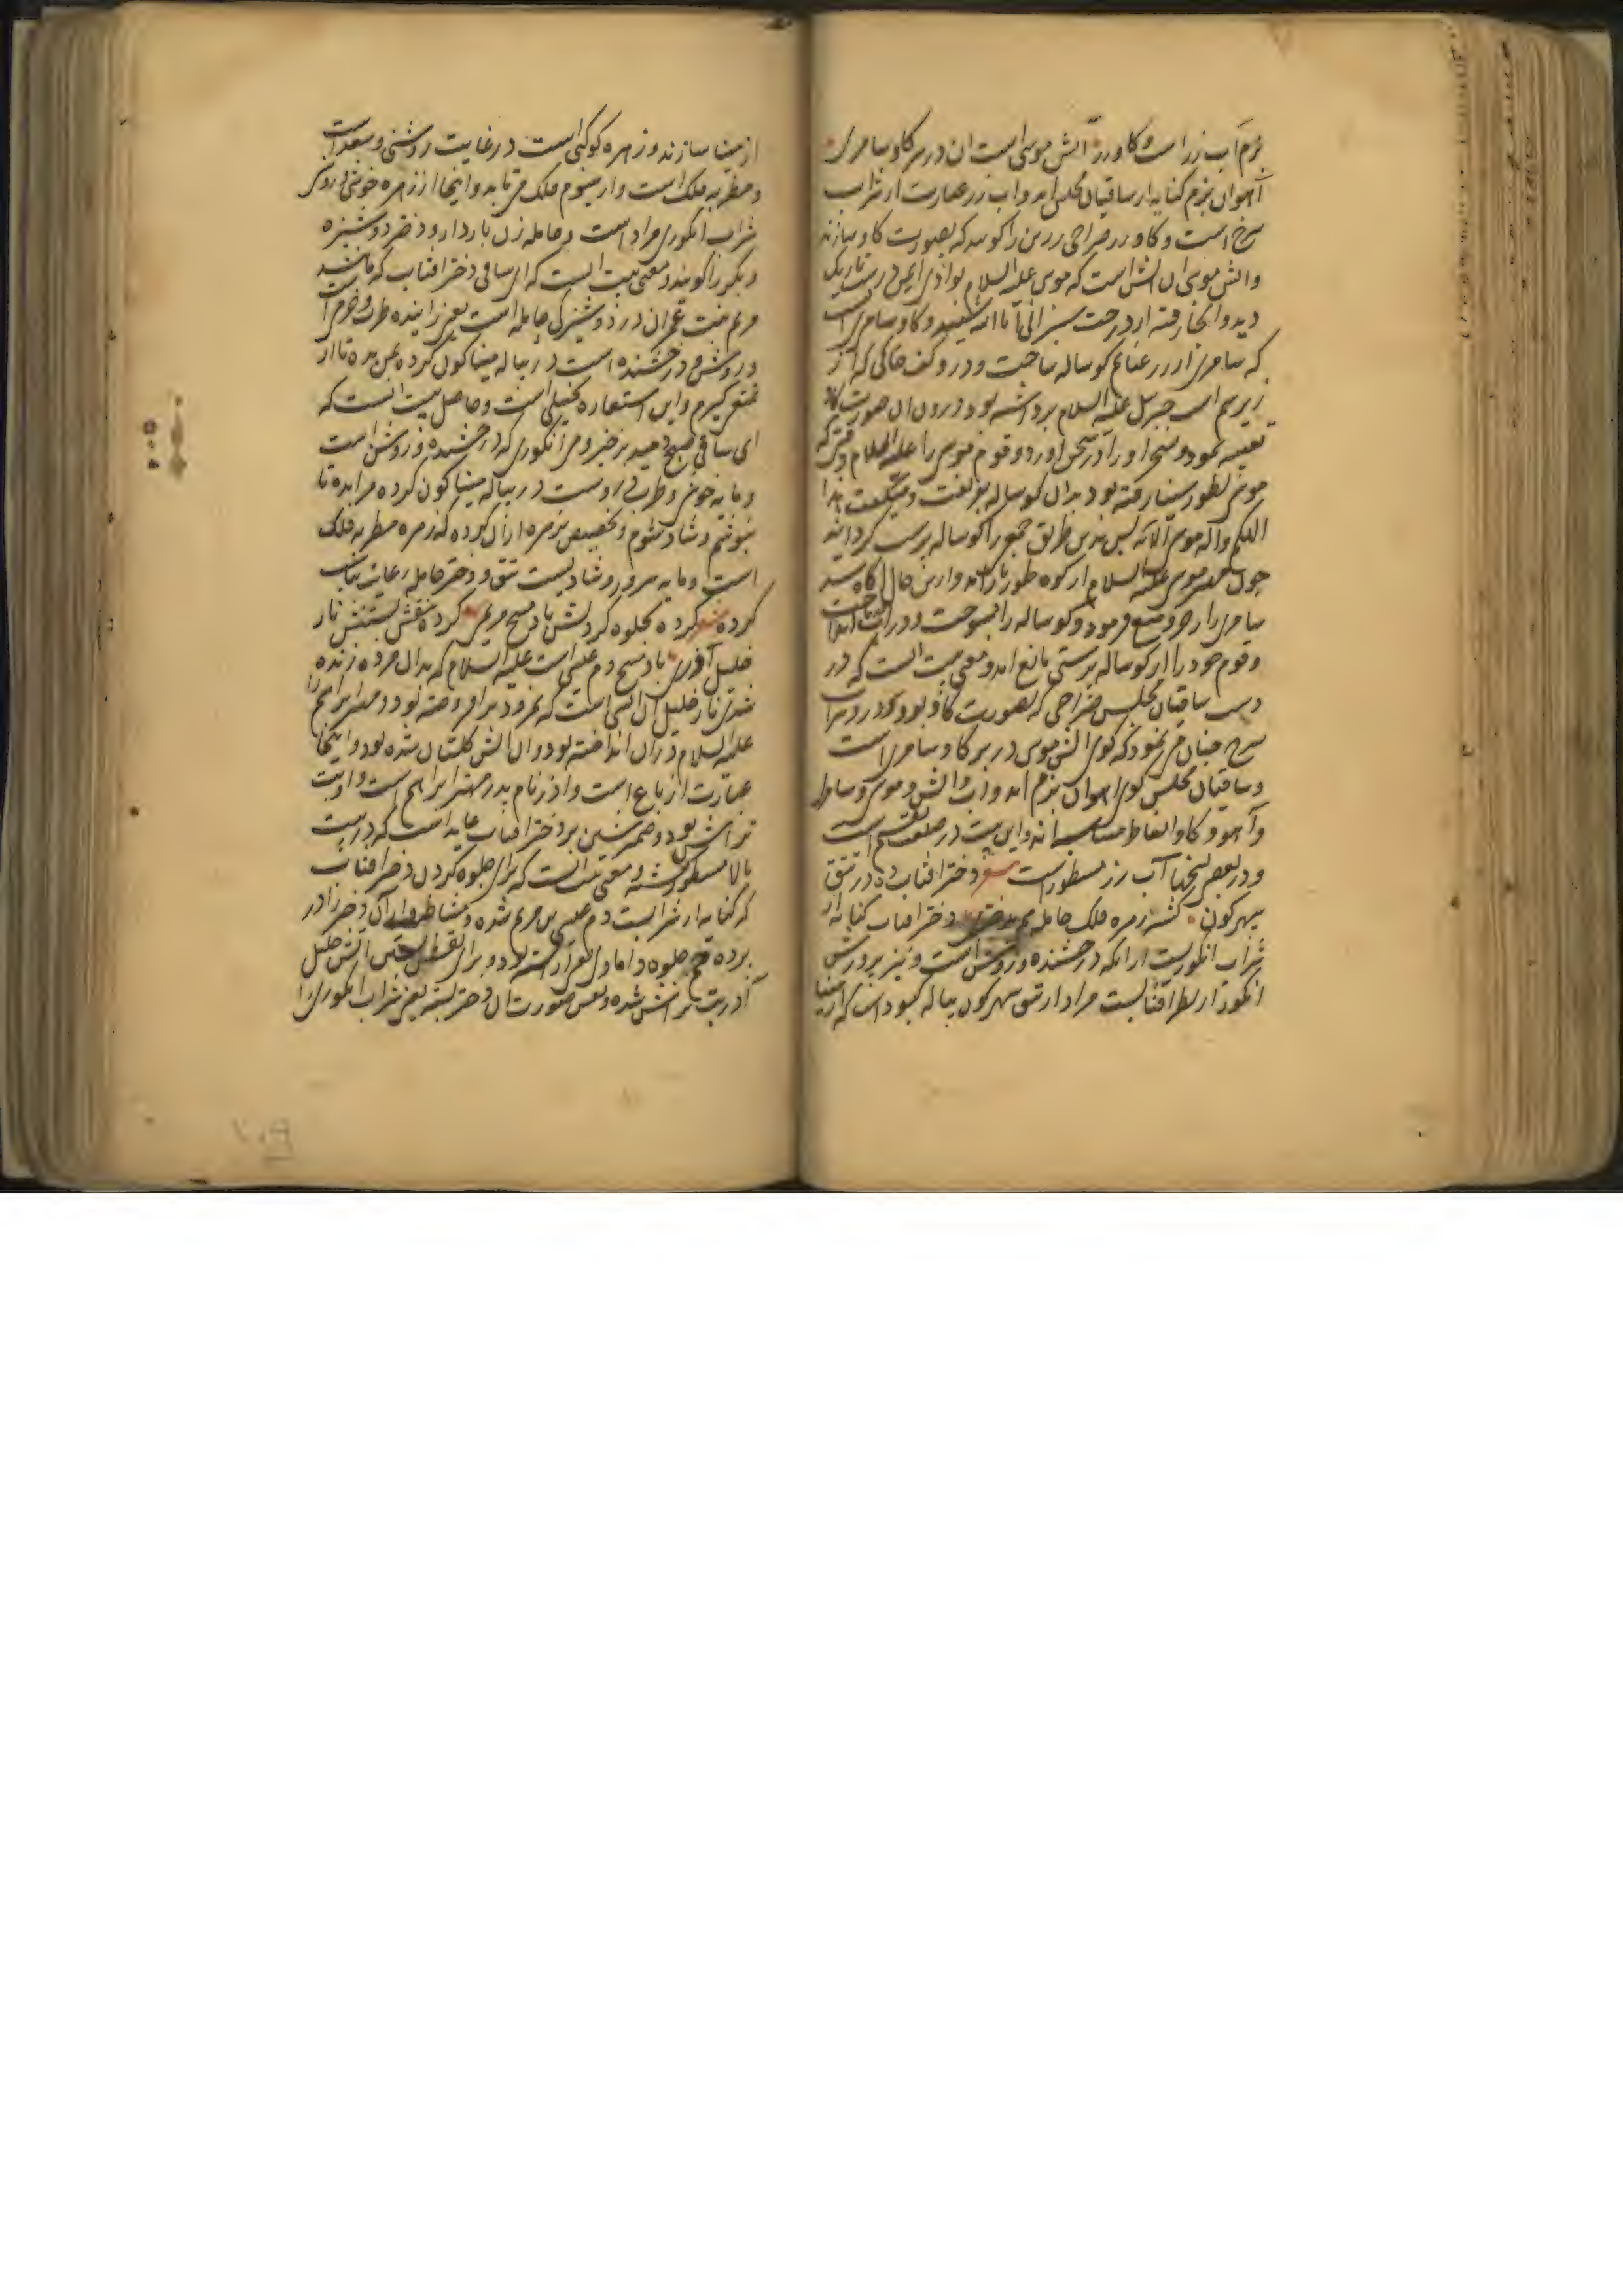 بزم آب زر است و کاو زر آتش موسی است ان در بر کاو سامری
آهوان بزم کنایه از ساقیان مجلس اند و اب زر عبارت از شراب
سرخ است و کاو زر صراحی زرین را کویند که بصورت کاو سازند
واتش موسی ان اتش است که موسی علیه السلام بوادی ایمن در شب تاریک
دید و آنجا رفته از درخت سبز انی انا الله شنید و کاو سامری انست
که سامری از زر غنایم کوساله ساخت و در و کف خاکی که از
زیر سم اسب جبریل علیه السلام برداشته بود درون ان صورت کاو
تعبیه نمود و او را در سخن اورد و قوم موسی را علیه السلام وقتی که
موسی بطور سینا رفته بود بدان کوساله بفریفت و میکفت هذا
الهکم و آله موسی پس بدین طریق جمیع را کوساله پرست کردانید
چون مهتر موسی علیه السلام از کوه طور باز آمد و ازین حال آکاه شد
سامری را زجر و منع فرمود و کوساله را بسوخت و در آب انداخت
وقوم خود را از کوساله پرستی مانع امد و معنی بیت انست که در
دست ساقیان مجلس صراحی که بصورت کاو بود و در و شراب
سرخ چنان می نمود که کوی اتش موسی در بر کاو سامری است
وساقیان مجلس کوی اهوان بزم اند و اب و اتش و موسی و سامری
و آهو و کاو الفاظ متناسبانه و این بیت در صنعت است
و در بعض نسخها آب رز مسطور است شعر دختر افتاب ده در تتق
سپهر کون کشته زهره فلک حامله هم بدختری دختر افتاب کنایه از
شراب انکوریست از انکه درخشنده و روشن است و نیز پرورش
انکور از نظر افتابست مراد از تتق سپهر کون پیاله کبود است که از مینا
از مینا سازند و زهره کوکبی است در غایت روشنی و سعد است
و مطربه فلک است و از سیوم فلک می تابد و اینجا از زهره خوشی و روشنی
شراب انکوری مراد است و حامله زن باردار و دختر دوشیزه
و بکر را کویند و معنی بیت انست که ای ساقی دختر افتاب که مانند
مریم بنت عمران در دوشیزکی حامله است یعنی زاینده طرب و خرمی است
و روشن و درخشنده است در پیاله مینا کون کرده بمن بده تا از
تمتع کیرم و این استعاره تخییلی است و حاصل بیت انست که
ای ساقی صبح دمید برخیز و می انکوری که درخشنده و روشن است
و مایه خوشی و طرب در پیاله مینا کون کرده مرا بده تا
بنوشم و شاد شوم و تخصیص زهره از ان کرده که زهره مطربه فلک
است و مایه سرور و شادیست تتق و دختر حامله رعایت تناسب
کرده شعر کرده بجلوه کردنش باد مسیح مریمی کرده بنقش بستنش نار
خلیل آذری باد مسیح دم عیسی است علیه السلام که بدان مرده زنده
شدی نار خلیل ان اتش است که نمرود برافروخته بود و مهتر ابراهیم را
علیه السلام در ان انداخته بود و ان اتش کلستان شده بود و اینجا
عبارت از باغ است و اذر نام پدر مهتر ابراهیم است و او بت
تراش بود و ضمیر شین بر دختر افتاب عاید است که در بیت
بالا مسطور کشته و معنی بیت انست که برای جلوه کردن دختر افتاب
که کنایه از شراب است دم عیسی بن مریم شده و مشاطه وار آن دختر را در
پرده جلوه داماد و برای نقش بستنش آتش خلیل
آذر بت تراش شده و نقش صورت ان دختر بسته یعنی شراب انکوری را